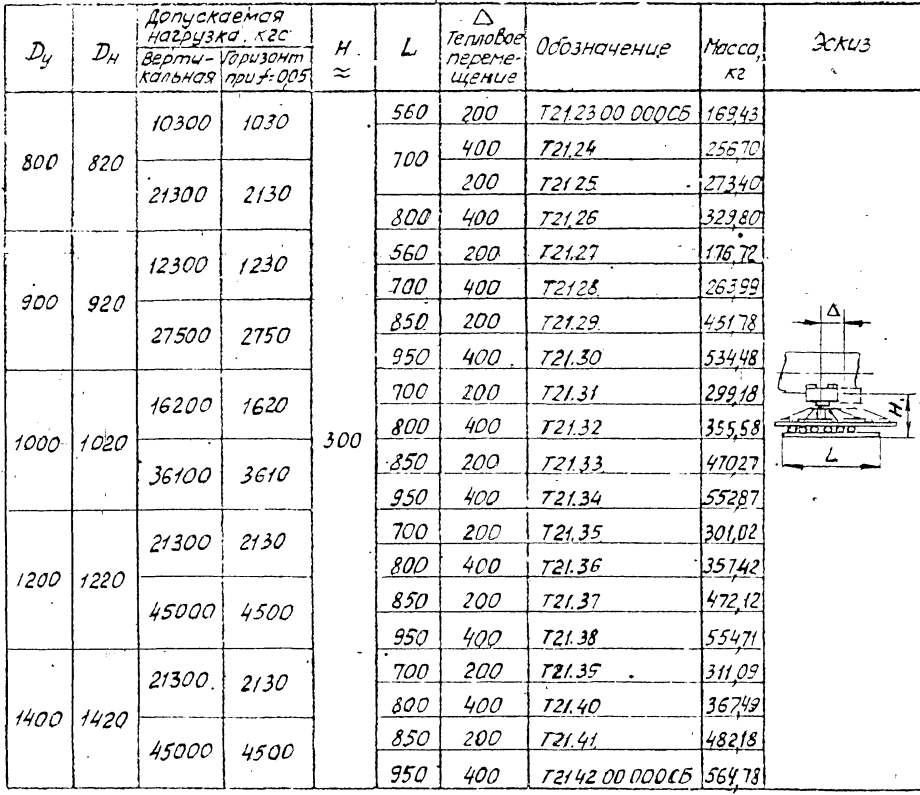 Dу Dн Допускаемая нагрузка, кгс H ≈ L Δ Тепловое перемещение Обозначение Масса, кг Эскиз
Вертикальная Горизонт при f=0,05
800 820 10300 1030 300 560 200 Т21.23 00 000СБ 169,43
700 400 Т21.24 256,70
21300 2130 200 Т21.25 273,40
800 400 Т21.26 329,80
900 920 12300 1230 560 200 Т21.27 176,72
700 400 Т21.28 263,99
27500 2750 850 200 Т21.29 451,78
950 400 Т21.30 534,48
1000 1020 16200 1620 700 200 Т21.31 299,18
800 400 Т21.32 355,58
36100 3610 850 200 Т21.33 470,27
950 400 Т21.34 552,87
1200 1220 21300 2130 700 200 Т21.35 301,02
800 400 Т21.36 357,42
45000 4500 850 200 Т21.37 472,12
950 400 Т21.38 554,71
1400 1420 21300 2130 700 200 Т21.39 311,09
800 400 Т21.40 367,49
45000 4500 850 200 Т21.41 482,18
950 400 Т21.42 00 000СБ 564,78
Δ
H
L